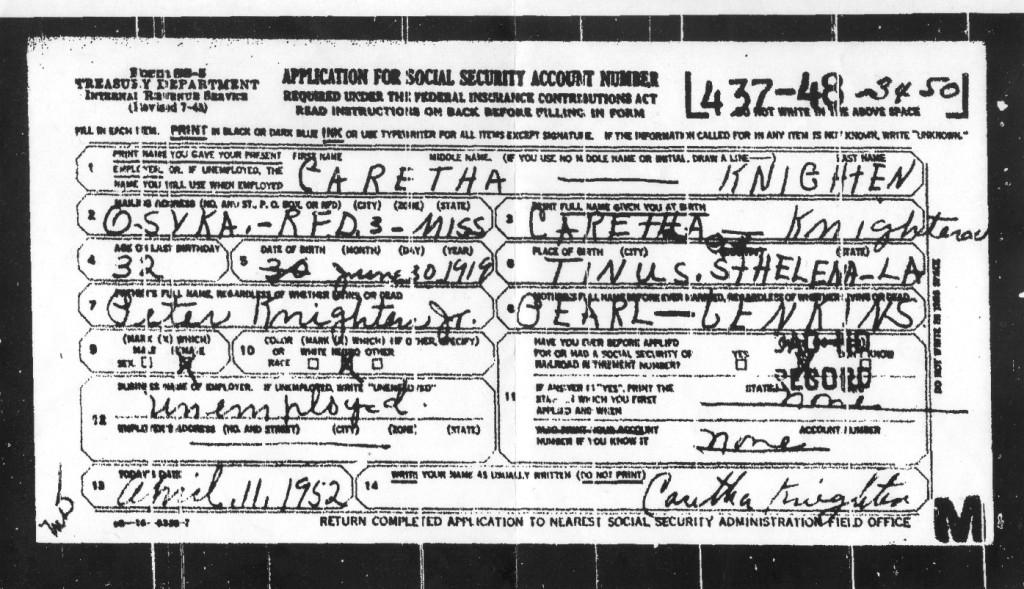 Form SS-5
TREASURY DEPARTMENT
INTERNAL REVENUE SERVICE
(Revised 7-48)
APPLICATION FOR SOCIAL SECURITY ACCOUNT NUMBER
REQUIRED UNDER THE FEDERAL INSURANCE CONTRIBUTIONS ACT
READ INSTRUCTIONS ON BACK BEFORE FILLING IN FORM
437-48-3450
DO NOT WRITE IN THE ABOVE SPACE
FILL IN EACH ITEM. PRINT IN BLACK OR DARK BLUE INK OR USE TYPEWRITER FOR ALL ITEMS EXCEPT SIGNATURE. IF THE INFORMATION CALLED FOR IN ANY ITEM IS NOT KNOWN, WRITE "UNKNOWN."
1 PRINT NAME YOU GAVE YOUR PRESENT EMPLOYER, OR IF UNEMPLOYED, THE NAME YOU WILL USE WHEN EMPLOYED
FIRST NAME MIDDLE NAME. (IF YOU USE NO MIDDLE NAME OR INITIAL, DRAW A LINE) LAST NAME
CARETHA — KNIGHTEN
2 MAILING ADDRESS (NO. AND ST., P. O. BOX, OR RFD) (CITY) (ZONE) (STATE)
O-SYKA.-RFD.3-MISS
3 PRINT FULL NAME GIVEN YOU AT BIRTH
CARETHA — Knighten
4 AGE ON LAST BIRTHDAY
32
5 DATE OF BIRTH (MONTH) (DAY) (YEAR)
30 June 30 1919
6 PLACE OF BIRTH (CITY) (STATE)
TINUS. StHELENA-LA
7 FATHER'S FULL NAME, REGARDLESS OF WHETHER LIVING OR DEAD
Peter Knighten, Jr.
8 MOTHER'S FULL NAME BEFORE EVER MARRIED, REGARDLESS OF WHETHER LIVING OR DEAD
PEARL — JENKINS
9 (MARK (X) WHICH)
MALE FEMALE
SEX [ ] X
10 COLOR OR RACE (MARK (X) WHICH) (IF OTHER, SPECIFY)
WHITE NEGRO OTHER
X
11 HAVE YOU EVER BEFORE APPLIED FOR OR HAD A SOCIAL SECURITY OR RAILROAD RETIREMENT NUMBER?
YES KNOW
RECORD
IF ANSWER IS "YES", PRINT THE STATE IN WHICH YOU FIRST APPLIED AND WHEN
STATE
none
ALSO PRINT YOUR ACCOUNT NUMBER IF YOU KNOW IT
ACCOUNT NUMBER
none
12 BUSINESS NAME OF EMPLOYER. IF UNEMPLOYED, WRITE "UNEMPLOYED"
unemployed.
EMPLOYER'S ADDRESS (NO. AND STREET) (CITY) (ZONE) (STATE)
13 TODAY'S DATE
April, 11, 1952
14 WRITE YOUR NAME AS USUALLY WRITTEN (DO NOT PRINT)
Caretha Knighten
RETURN COMPLETED APPLICATION TO NEAREST SOCIAL SECURITY ADMINISTRATION FIELD OFFICE
M
DO NOT WRITE IN THIS SPACE